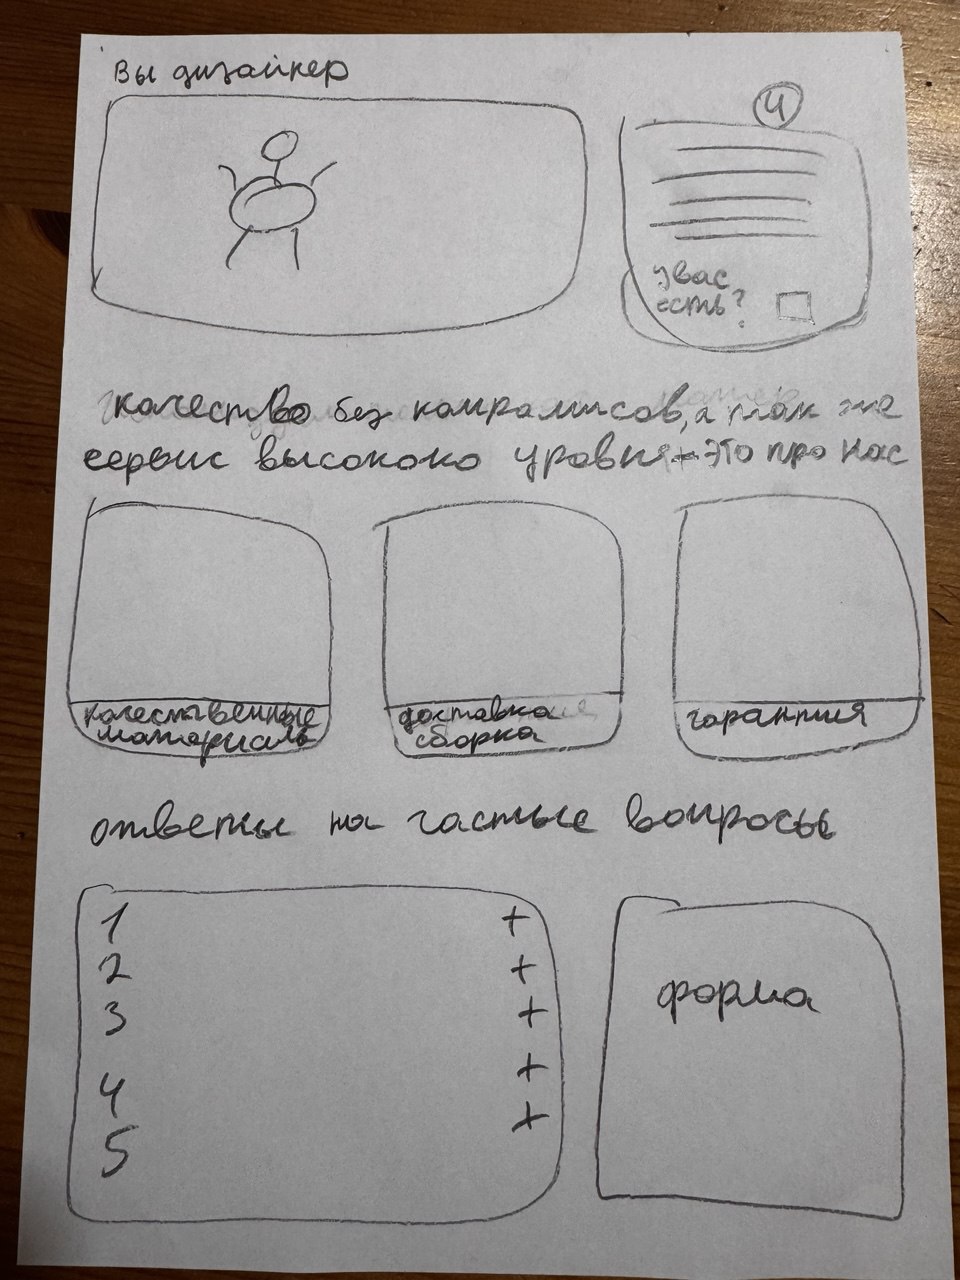 Вы дизайнер
4
у вас
есть?
качество без компрамисов, а так же
сервис высококо уровня - это про нас
качественные
материалы
доставка
сборка
гарантия
ответы на частые вопросы
1 +
2 +
3 +
4 +
5 +
форма